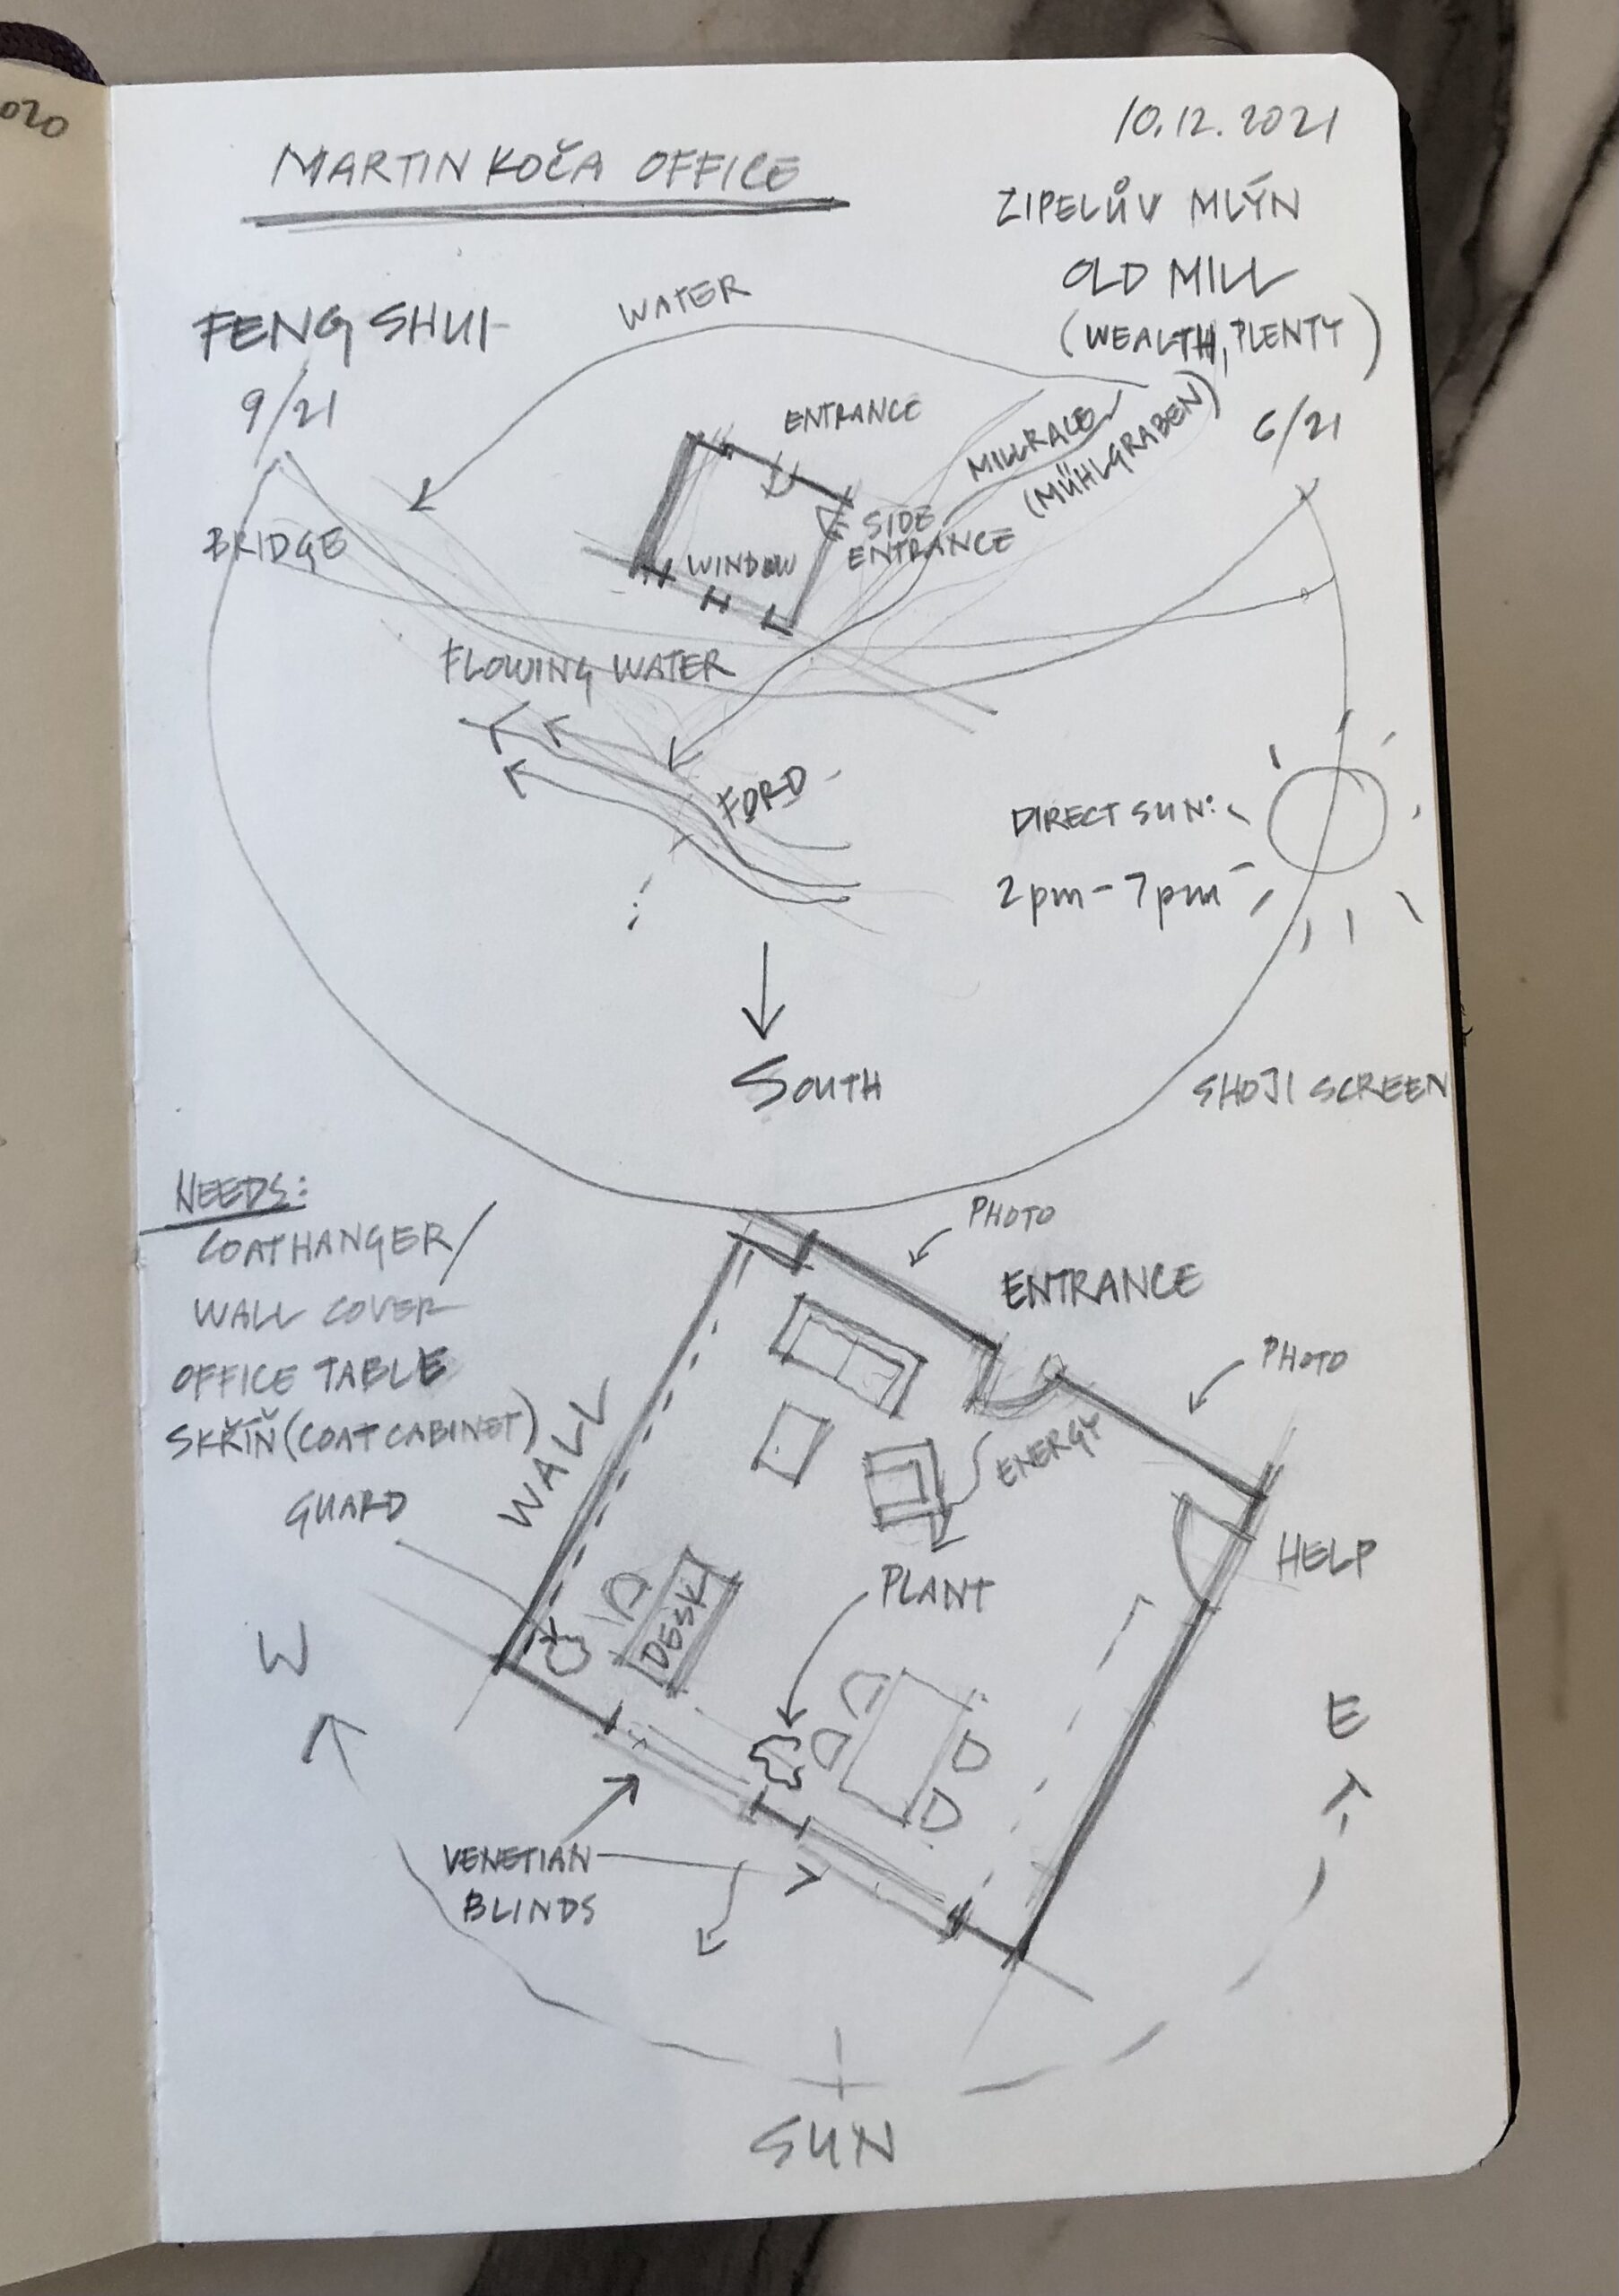 020
10.12.2021
MARTIN KOČA OFFICE
ZIPELŮV MLÝN
OLD MILL
(WEALTH, PLENTY)
FENG SHUI
WATER
9/21
6/21
ENTRANCE
MILLRACE
(MÜHLGRABEN)
SIDE
ENTRANCE
BRIDGE
WINDOW
FLOWING WATER
FORD
DIRECT SUN:
2pm-7pm
SOUTH
SHOJI SCREEN
NEEDS:
COATHANGER/
WALL COVER
OFFICE TABLE
SKŘÍŇ (COAT CABINET)
GUARD
PHOTO
ENTRANCE
PHOTO
WALL
ENERGY
HELP
PLANT
DESK
W
E
VENETIAN
BLINDS
SUN